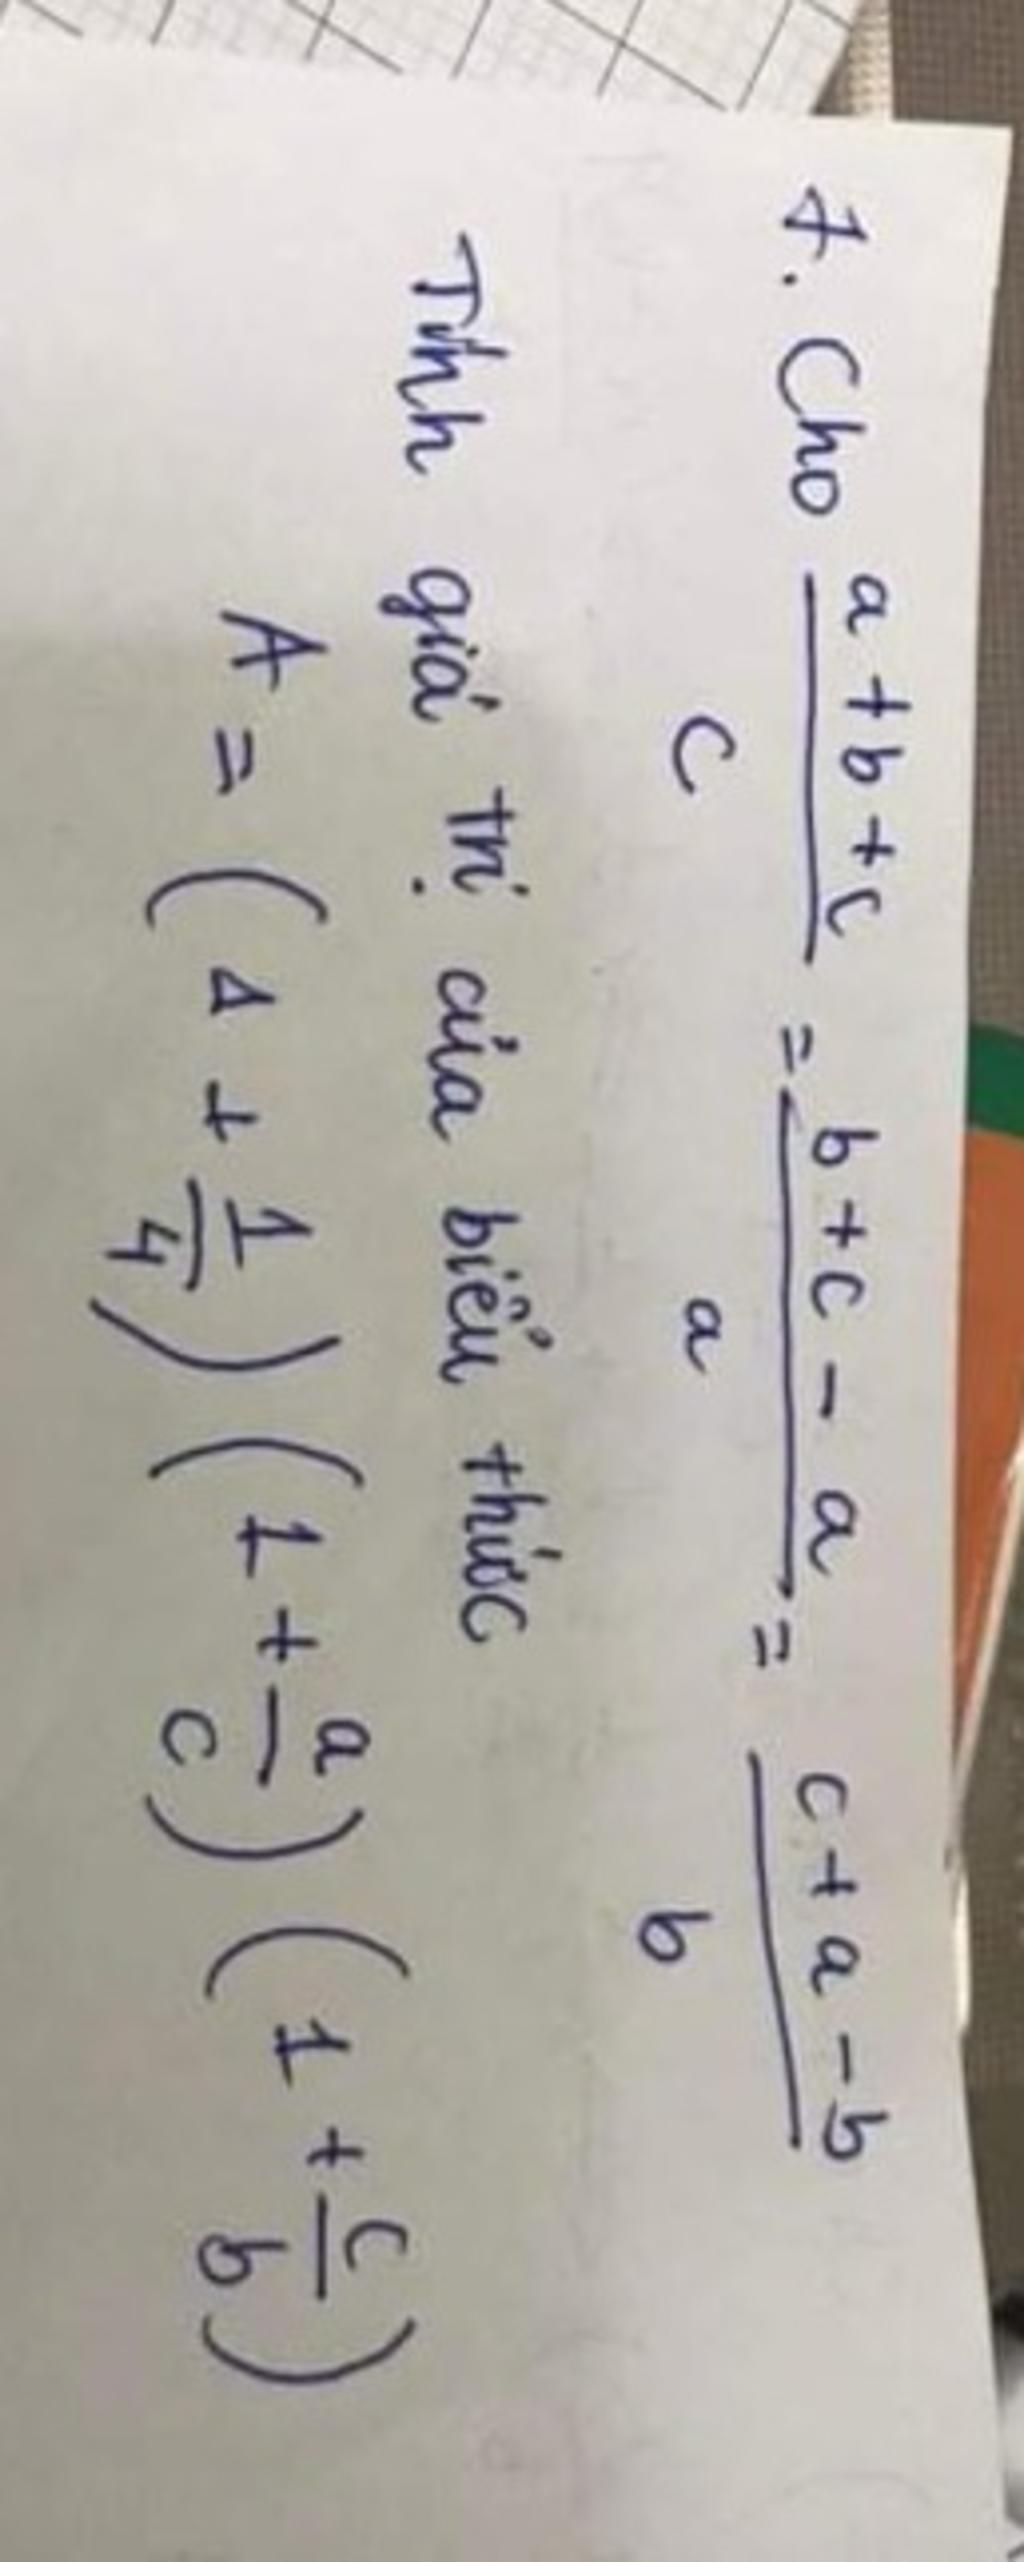 7. Cho (a + b + c)/c = (b + c - a)/a = (c + a - b)/b
Tính giá trị của biểu thức
A = (1 + 1/4) (1 + a/c) (1 + c/b)